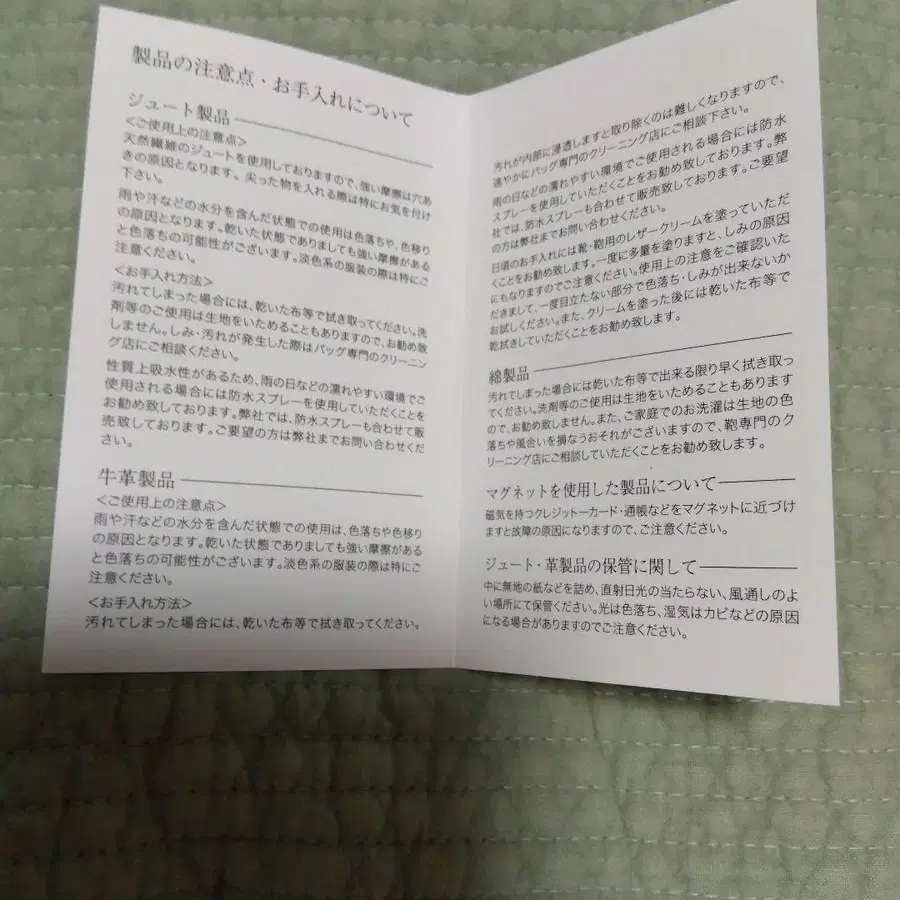 製品の注意点・お手入れについて
ジュート製品
<ご使用上の注意点>
天然繊維のジュートを使用しておりますので、強い摩擦は穴あ
きの原因となります。尖った物を入れる際は特にお気を付け
下さい。
雨や汗などの水分を含んだ状態での使用は色落ちや、色移り
の原因となります。乾いた状態でありましても強い摩擦がある
と色落ちの可能性がございます。淡色系の服装の際は特にご
注意ください。
<お手入れ方法>
汚れてしまった場合には、乾いた布等で拭き取ってください。洗
剤等のご使用は生地をいためることもありますので、お勧め致
しません。しみ・汚れが発生した際はバッグ専門のクリーニン
グ店にご相談ください。
性質上吸水性があるため、雨の日などの濡れやすい環境でご
使用される場合には防水スプレーを使用していただくことを
お勧め致しております。弊社では、防水スプレーも合わせて販
売致しております。ご要望の方は弊社までお問い合わせくだ
さい。
牛革製品
<ご使用上の注意点>
雨や汗などの水分を含んだ状態での使用は、色落ちや色移り
の原因となります。乾いた状態でありましても強い摩擦がある
と色落ちの可能性がございます。淡色系の服装の際は特にご
注意ください。
<お手入れ方法>
汚れてしまった場合には、乾いた布等で拭き取ってください。
汚れが内部に浸透しますと取り除くのは難しくなりますので、
速やかにバッグ専門のクリーニング店にご相談下さい。
雨の日などの濡れやすい環境でご使用される場合には防水
スプレーを使用していただくことをお勧め致しております。弊
社では、防水スプレーも合わせて販売致しております。ご要望
の方は弊社までお問い合わせください。
日頃のお手入れには靴・鞄用のレザークリームを塗っていただ
くことをお勧め致します。一度に多量を塗りますと、しみの原因
にもなりますのでご注意ください。使用上の注意をご確認いた
だきまして、一度目立たない部分で色落ち・しみが出来ないか
お試しください。また、クリームを塗った後には乾いた布等で
乾拭きしていただくことをお勧め致します。
綿製品
汚れてしまった場合には乾いた布等で出来る限り早く拭き取っ
てください。洗剤等のご使用は生地をいためることもあります
ので、お勧め致しません。また、ご家庭でのお洗濯は生地の色
落ちや風合いを損なうおそれがございますので、鞄専門のク
リーニング店にご相談していただくことをお勧め致します。
マグネットを使用した製品について
磁気を持つクレジットーカード・通帳などをマグネットに近づけ
ますと故障の原因になりますので、ご注意ください。
ジュート・革製品の保管に関して
中に無地の紙などを詰め、直射日光の当たらない、風通しのよ
い場所にて保管ください。光は色落ち、湿気はカビなどの原因
になる場合がありますのでご注意ください。